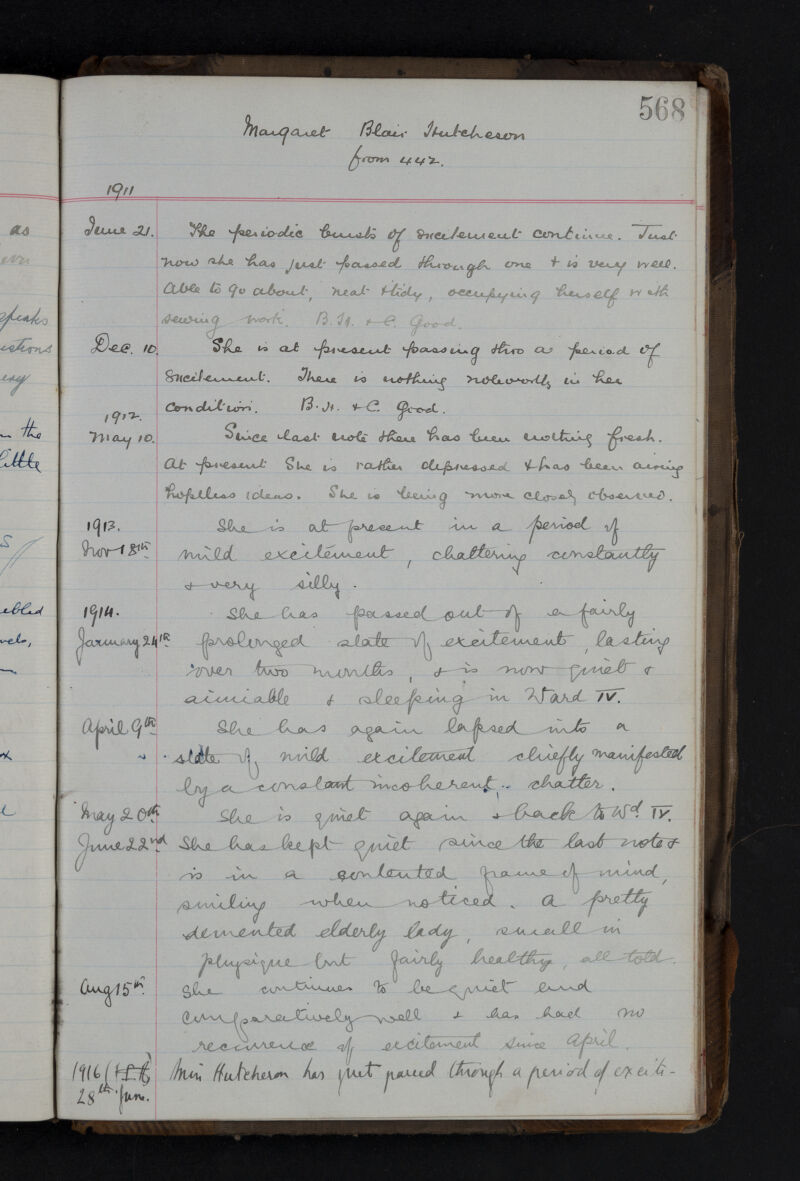 568
Margaret Blair Hutcheson
from 442.
1911
June 21. The periodic bursts of excitement continue. Just
now she has just passed through one & is very well.
Able to go about, neat & tidy, occupying herself with
sewing work. B.H. & C. Good.
Dec. 10. She is at present passing thro a period of
excitement. There is nothing noteworthy in her
condition. B.H. & C. Good.
1912.
May 10. Since last note there has been nothing fresh.
At present she is rather depressed & has been airing
hopeless ideas. She is being more closely observed.
1913. She is at present in a period of
Nov 18th mild excitement, chattering constantly
& very silly.
1914. She has passed out of a fairly
January 24th prolonged state of excitement, lasting
over two months, & is now quiet &
aimiable & sleeping in Ward IV.
April 9th She has again lapsed into a
state of mild excitement chiefly manifested
by a constant incoherent chatter.
May 20th She is quiet again & back to Wd. IV.
June 22nd She has kept quiet since the last note &
is in a contented frame of mind,
smiling when noticed. A pretty
demented elderly lady, small in
physique but fairly healthy, all told.
Aug 15th. She continues to be quiet and
comparatively well & has had no
recurrence of excitement since April.
1916 Miss Hutcheson has just passed through a period of excite-
28th June.
as
speaks
the
little